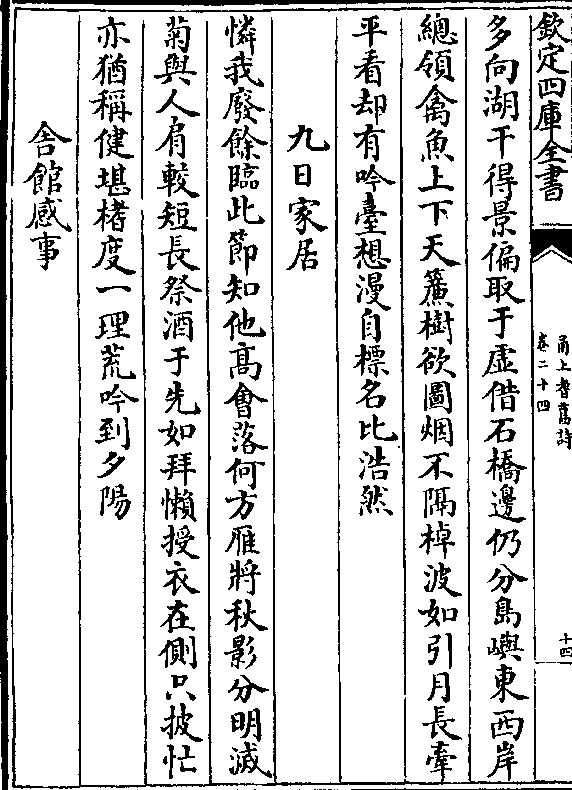 欽定四庫全書
甬上耆舊詩
卷二十四
十四
多向湖干得景偏取于虛借石橋邊仍分島嶼東西岸
總領禽魚上下天簾樹欲圖烟不隔棹波如引月長牽
平看却有吟臺想漫自標名比浩然
九日家居
憐我廢餘臨此節知他髙㑹落何方雁將秋影分明滅
菊與人肩較短長祭酒于先如拜懶授衣在側只披忙
亦猶稱健堪楮度一理荒吟到夕陽
舎館感事